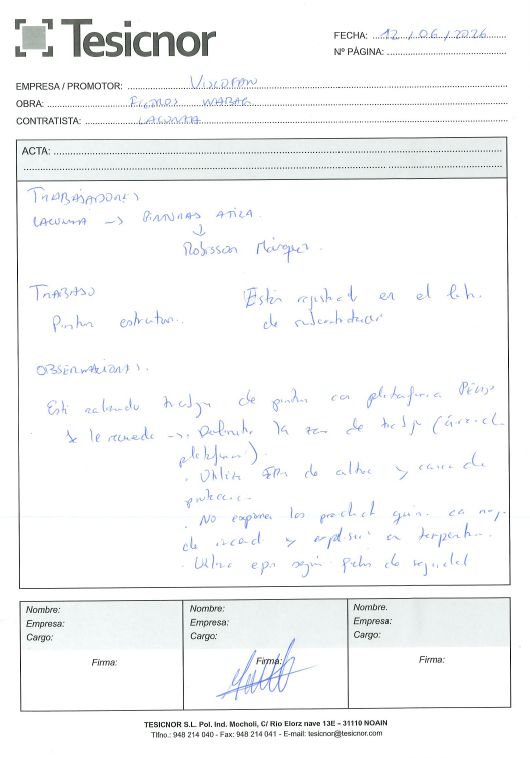 Tesicnor
FECHA: 12 / 06 / 2026
Nº PÁGINA:
EMPRESA / PROMOTOR: VISCOFAN
OBRA: WABAG
CONTRATISTA: LACUNZA
ACTA:
TRABAJADORES
LACUNZA -> PINTURAS ATIZA.
Robisson Márquez.
TRABAJO
Pintar estructura.
Están en el
de subcontratación
OBSERVACIONES.
Está realizando trabajos de pintura con plataforma
Se le recuerda -> Delimitar la zona de trabajo (área de
plataforma).
· Utilizar EPIs de altura y careta de
protección.
· No exponer los product quím. con
de incend y explosión en
· Utilizar epis según fichas de seguridad
Nombre:
Empresa:
Cargo:
Firma:
Nombre:
Empresa:
Cargo:
Firma:
Nombre.
Empresa:
Cargo:
Firma:
TESICNOR S.L. Pol. Ind. Mocholi, C/ Río Elorz nave 13E – 31110 NOAIN
Tlfno.: 948 214 040 - Fax: 948 214 041 - E-mail: tesicnor@tesicnor.com